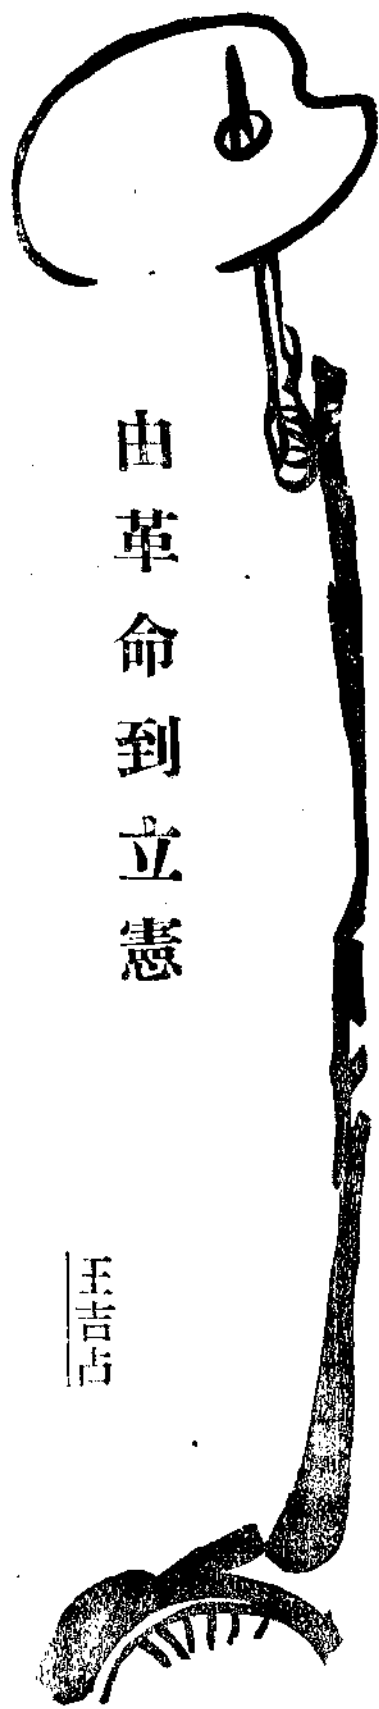 由革命到立憲
王吉占